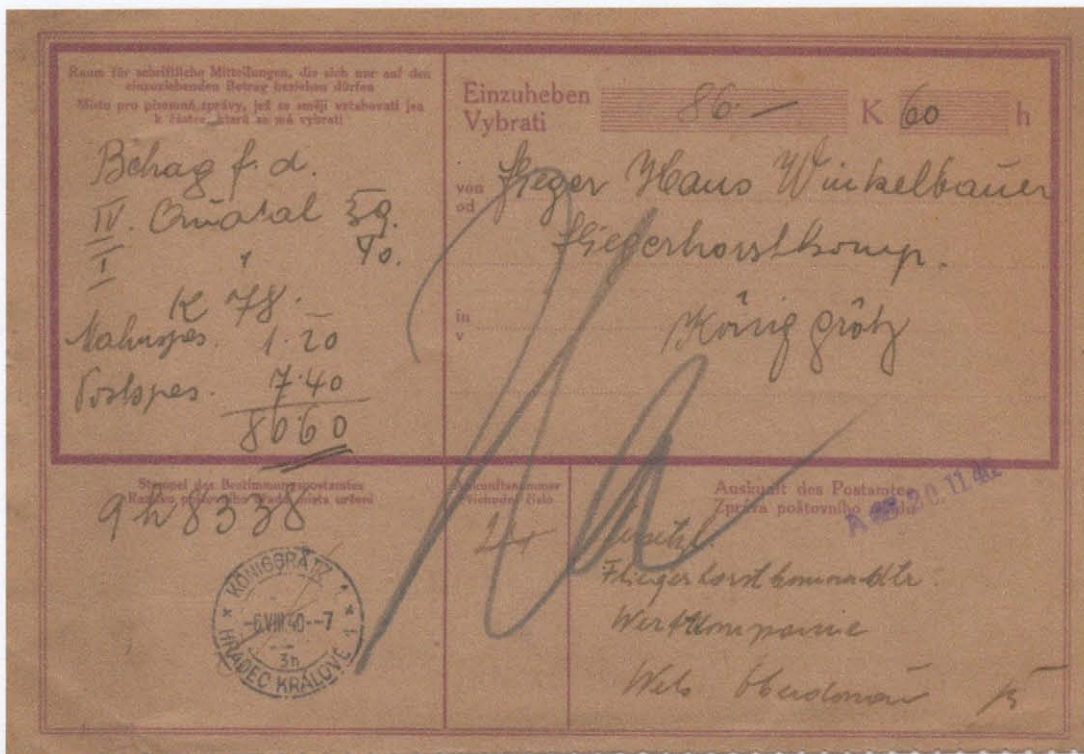 Raum für schriftliche Mitteilungen, die sich nur auf den
einzuziehenden Betrag beziehen dürfen
Místo pro písemné zprávy, jež se smějí vztahovati jen
k částce, která se má vybrati
Betrag f. d.
IV. Quatal 39.
I " 40.
K 78.
Mahnspes. 1.20
Postspes. 7.40
86 60
Einzuheben
Vybrati
86.— K 60 h
von
od
Flieger Hans Winkelbauer
Fliegerhorstkomp.
in
v
Königgrätz
Stempel des Bestimmungspostamtes
Razítko poštovního úřadu místa určení
9 h 8338
KÖNIGGRÄTZ 1
-6.VIII.40.--7
3h
HRADEC KRÁLOVÉ 1
Auskunft des Postamtes
Zpráva poštovního úřadu
30.11.
Versetzt.
Fliegerhorstkommandtr.
Werftkompanie
Wels Oberdonau